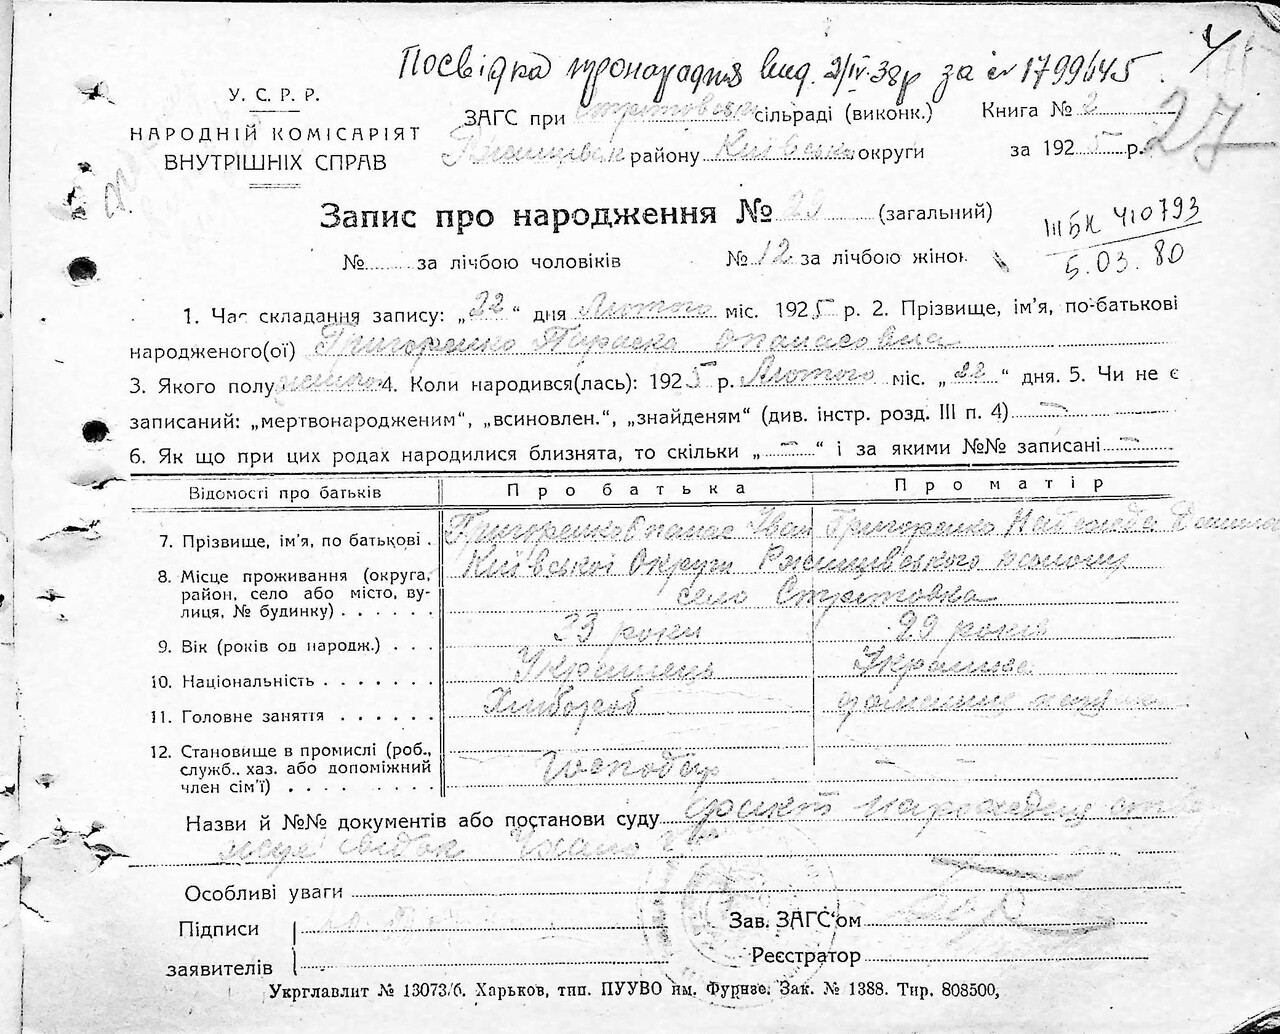 Посвідка про народження вид. 2/IV-38р за № 1799645
У. С. Р. Р.
НАРОДНІЙ КОМІСАРІЯТ
ВНУТРІШНІХ СПРАВ
ЗАГС при Стритовськ сільраді (виконк.) Книга № 2
району Київсько округи за 1925 р.
27
Запис про народження № 29 (загальний)
№ за лічбою чоловіків № 12 за лічбою жінок
410793
5.03.80
1. Час складання запису: „22“ дня Лютого міс. 1925 р. 2. Прізвище, ім’я, по-батькові
народженого(ої) Григоренко Параска Опанасовна
3. Якого полу жіночого 4. Коли народився(лась): 1925 р. Лютого міс. „22“ дня. 5. Чи не є
записаний: „мертвонародженим“, „всиновлен.“, „знайденям“ (див. інстр. розд. III п. 4) —
6. Як що при цих родах народилися близнята, то скільки „—“ і за якими №№ записані —
Відомості про батьків Про батька Про матір
7. Прізвище, ім’я, по батькові . Григоренко Опанас Іван Григоренко
8. Місце проживання (округа, район, село або місто, вулиця, № будинку) . . . . . Київської Округи Ржищевського району
село Стритовка
9. Вік (років од народж.) . . . 33 роки 29 років
10. Національність . . . . . . . Українець Українка
11. Головне заняття . . . . . . Хлібороб
12. Становище в промислі (роб.,
служб., хаз. або допоміжний
член сім’ї) . . . . . . . . . . Господар — —
Назви й №№ документів або постанови суду факт народження
свідок
Особливі уваги
Підписи
заявителів
Зав. ЗАГС‘ом
Реєстратор
Укрглавлит № 13073/б. Харьков, тип. ПУУВО им. Фурнзе. Зак. № 1388. Тир. 808500,